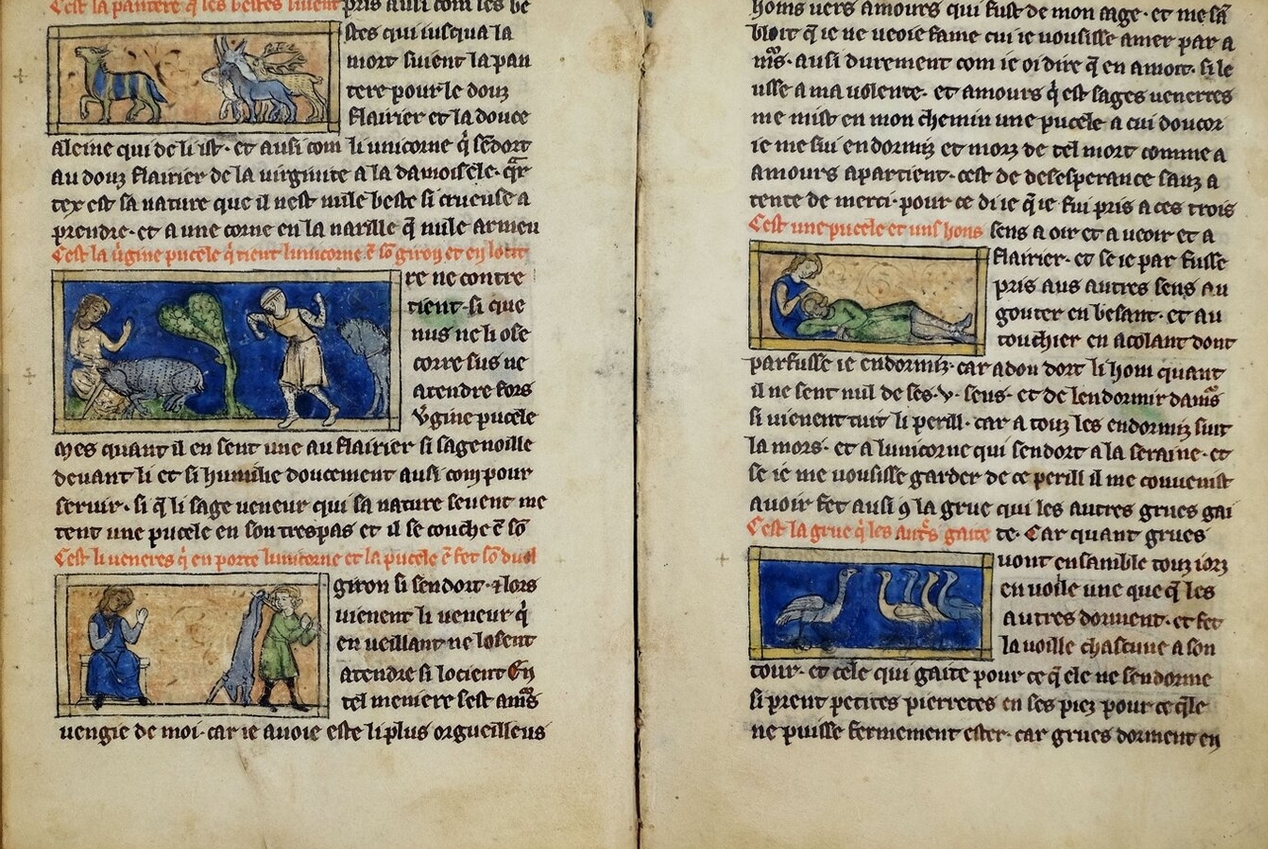 Cest la pantere q̄ les bestes siuent pris ausi com les be
stes qui iusqua la
mort siuent la pan
tere pour le douz
flairier et la douce
aleine qui de li ist· et ausi com li unicorne q̇ sēdort
au douz flairier de la virginite a la damoisele· qr̄
tex est sa nature que il nest nule beste si crueuse a
prendre· et a une corne en la narille q̄ nule armeu
Cest la v̇gine pucele q̇ tient lunicorne ē sō giron et en lotit
re ne contre
tient· si que
nus ne li ose
corre sus ne
atendre fors
v̇gine pucele
Mes quant il en sent une au flairier si sagenoille
deuant li et si humilie doucement ausi com pour
seruir· si q̄ li sage ueneur qui sa nature seuent me
tent une pucele en son trespas et il se couche ē sō
Cest li ueneres q̇ en porte lunicorne et la pucele ē fet sō duel
giron si sendort· ⁊ lors
uienent li ueneur q̇
en ueillant ne losent
atendre si locient En
tel meniere sest am̄s
uengie de moi· car ie auoie este li plus orgueilleus
homs uers amours qui fust de mon aage· et me sā
bloit q̄ ie ne ueoie fame cui ie uousisse amer par a
m̄s· ausi durement com ie oi dire q̄ en amoit· si le
usse a ma uolente· et amours q̇ est sages ueneres
me mist en mon chemin une pucele a cui doucor
ie me sui endormiz et morz de tel mort comme a
amours apartient· cest de desesperance sanz a
tente de merci· pour ce di ie q̄ ie fui pris a ces trois
Cest une pucele et uns hons sens a oir et a ueoir et a
flairier· et se ie par fusse
pris aus autres sens au
gouter en besant· et au
touchier en acolant dont
parfusse ie endormiz· car adon dort li hom quant
il ne sent nul de ses·v· sens· et de lendormir dam̄s
si uienent tuit li perill· car a touz les endormiz suit
la mors· et a lunicorne qui sendort a la seraine· et
se ie me uousisse garder de ce perill il me conuenist
auoir fet ausi ꝯ la grue qui les autres grues gai
Cest la grue q̇ les aut̄s gaite te· Car quant grues
uont ensamble touz iorz
en uoile une que q̄ les
autres dorment· et fet
la uoille chascune a son
tour· et cele qui gaite pour ce q̄ ele ne sendorme
si prent petites pierretes en ses piez pour ce q̄le
ne puisse fermement ester· car grues dorment en